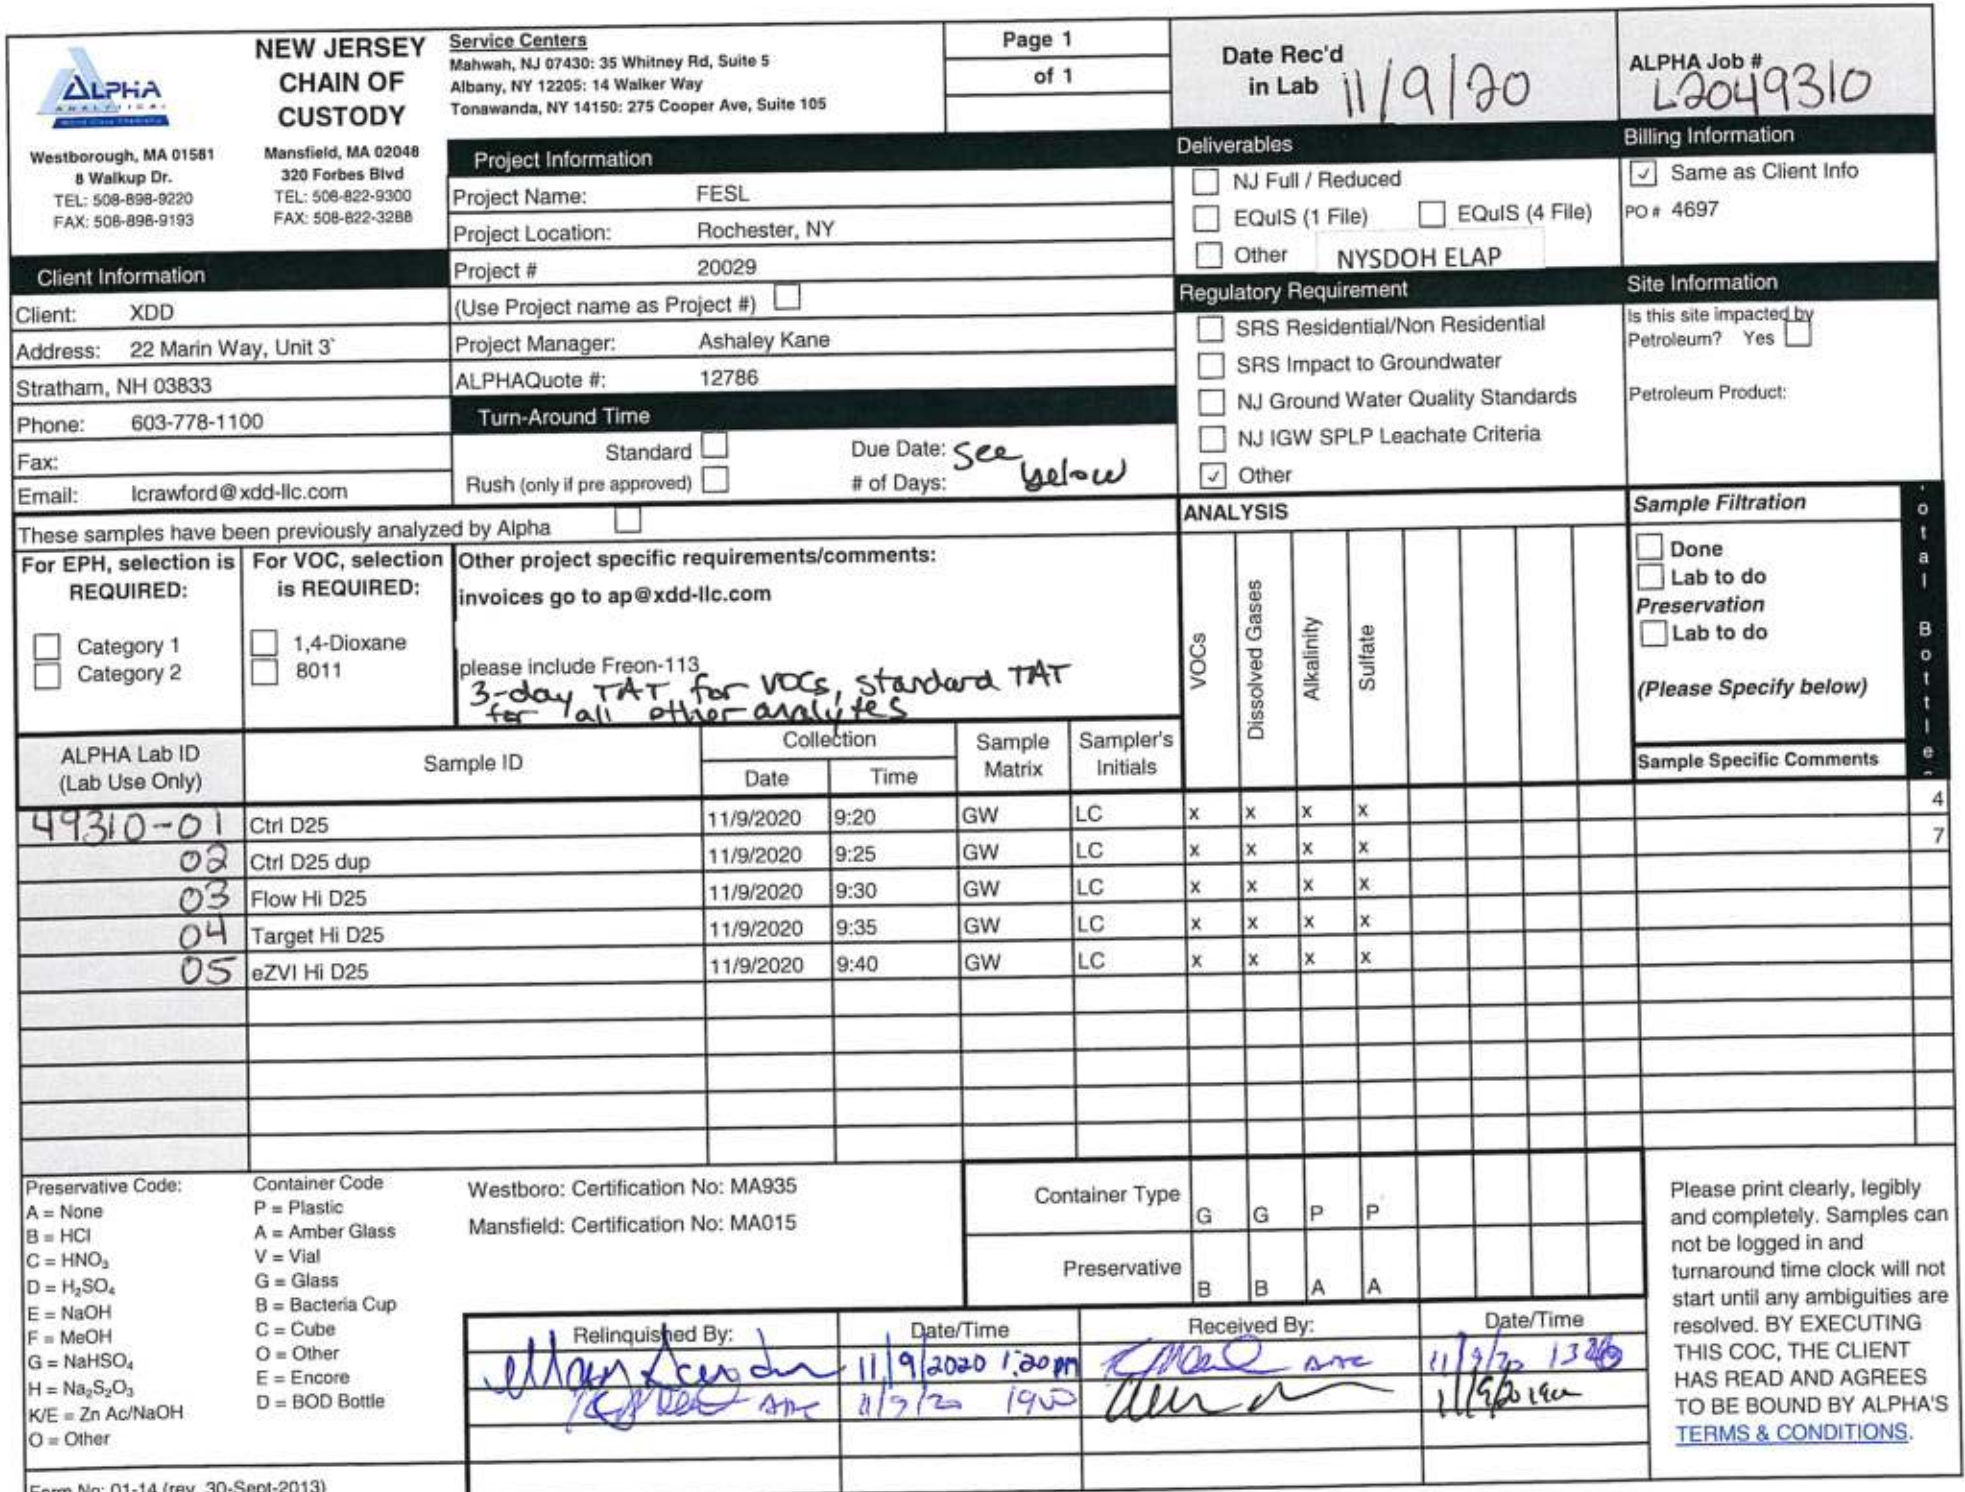 ALPHA
ANALYTICAL
World Class Chemistry
NEW JERSEY
CHAIN OF
CUSTODY
Westborough, MA 01581
8 Walkup Dr.
TEL: 508-898-9220
FAX: 508-898-9193
Mansfield, MA 02048
320 Forbes Blvd
TEL: 508-822-9300
FAX: 508-822-3288
Service Centers
Mahwah, NJ 07430: 35 Whitney Rd, Suite 5
Albany, NY 12205: 14 Walker Way
Tonawanda, NY 14150: 275 Cooper Ave, Suite 105
Page 1
of 1
Date Rec'd
in Lab 11/9/20
ALPHA Job #
L2049310
Project Information
Project Name: FESL
Project Location: Rochester, NY
Project # 20029
(Use Project name as Project #)
Project Manager: Ashaley Kane
ALPHAQuote #: 12786
Turn-Around Time
Standard
Rush (only if pre approved)
Due Date: See
# of Days: below
Deliverables
NJ Full / Reduced
EQuIS (1 File) EQuIS (4 File)
Other NYSDOH ELAP
Regulatory Requirement
SRS Residential/Non Residential
SRS Impact to Groundwater
NJ Ground Water Quality Standards
NJ IGW SPLP Leachate Criteria
✓ Other
Billing Information
✓ Same as Client Info
PO # 4697
Site Information
Is this site impacted by
Petroleum? Yes
Petroleum Product:
Client Information
Client: XDD
Address: 22 Marin Way, Unit 3`
Stratham, NH 03833
Phone: 603-778-1100
Fax:
Email: lcrawford@xdd-llc.com
These samples have been previously analyzed by Alpha
For EPH, selection is
REQUIRED:
Category 1
Category 2
For VOC, selection
is REQUIRED:
1,4-Dioxane
8011
Other project specific requirements/comments:
invoices go to ap@xdd-llc.com
please include Freon-113
3-day TAT for VOCs, standard TAT
for all other analytes
ANALYSIS
VOCs
Dissolved Gases
Alkalinity
Sulfate
Sample Filtration
Done
Lab to do
Preservation
Lab to do
(Please Specify below)
Sample Specific Comments
otal Bottle
ALPHA Lab ID
(Lab Use Only)
Sample ID
Collection
Date Time
Sample
Matrix
Sampler's
Initials
49310-01 Ctrl D25 11/9/2020 9:20 GW LC x x x x 4
02 Ctrl D25 dup 11/9/2020 9:25 GW LC x x x x 7
03 Flow Hi D25 11/9/2020 9:30 GW LC x x x x
04 Target Hi D25 11/9/2020 9:35 GW LC x x x x
05 eZVI Hi D25 11/9/2020 9:40 GW LC x x x x
Preservative Code:
A = None
B = HCl
C = HNO₃
D = H₂SO₄
E = NaOH
F = MeOH
G = NaHSO₄
H = Na₂S₂O₃
K/E = Zn Ac/NaOH
O = Other
Container Code
P = Plastic
A = Amber Glass
V = Vial
G = Glass
B = Bacteria Cup
C = Cube
O = Other
E = Encore
D = BOD Bottle
Westboro: Certification No: MA935
Mansfield: Certification No: MA015
Container Type G G P P
Preservative B B A A
Relinquished By: Date/Time Received By: Date/Time
11/9/2020 1:20pm 11/9/20
11/9/20 1900 11/9/20 1900
Please print clearly, legibly
and completely. Samples can
not be logged in and
turnaround time clock will not
start until any ambiguities are
resolved. BY EXECUTING
THIS COC, THE CLIENT
HAS READ AND AGREES
TO BE BOUND BY ALPHA'S
TERMS & CONDITIONS.
Form No: 01-14 (rev. 30-Sept-2013)